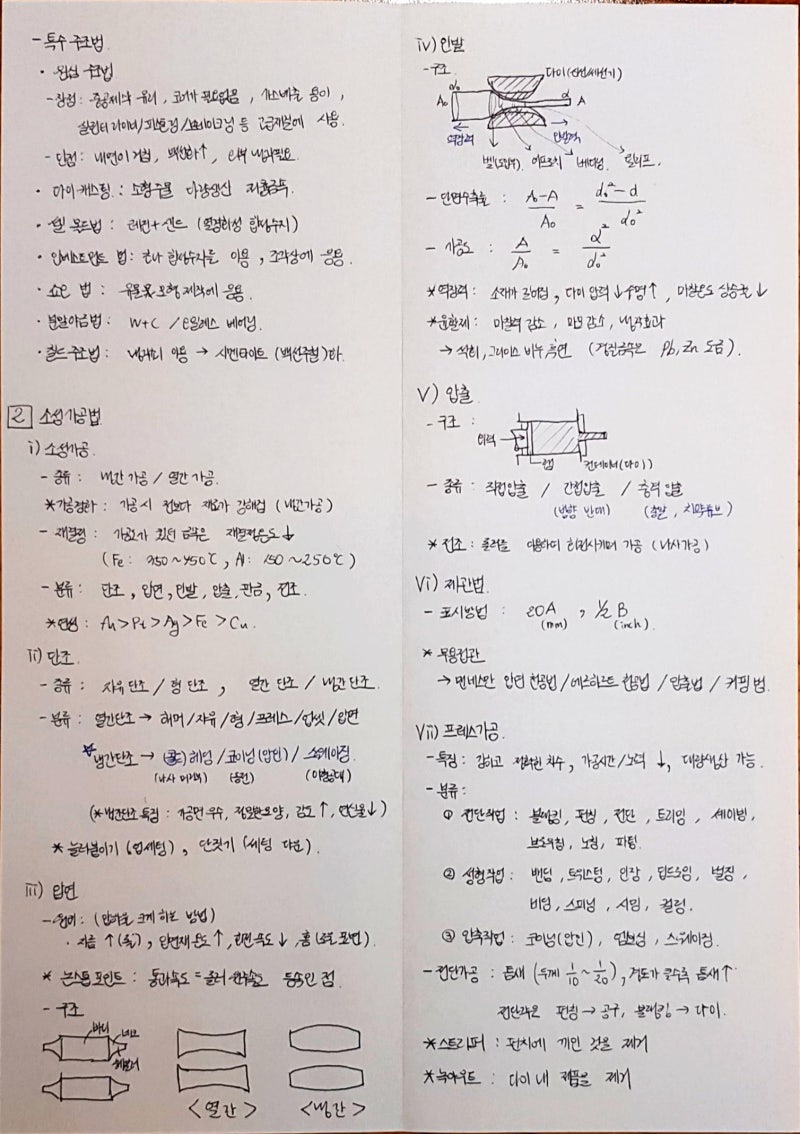 - 특수 주조법
· 원심 주조법
- 장점 : 중공제작 유리, 코어가 필요없음, 가스배출 용이,
실린더 라이너/피스톤링/브레이크링 등 고급재질에 사용.
- 단점 : 내면이 거침, 백선화↑, 외부 냉각필요.
· 다이캐스팅 : 소형주물 다량생산 저용융금속
· 쉘 몰드법 : 레진+샌드 (열경화성 합성수지)
· 인베스트먼트 법 : 왁스나 합성수지를 이용, 조각상에 응용.
· 쇼우 법 : 유물 및 모형 제작에 응용.
· 분말야금법 : W+C / 오일레스 베어링.
· 칠드주조법 : 냉각리 이용 → 시멘타이트 (백선주철)화.
2 소성가공법
i) 소성가공.
- 종류 : 냉간 가공 / 열간 가공.
*가공경화 : 가공시 전보다 재료가 강해짐 (냉간가공)
- 재결정 : 가공도가 컸던 금속은 재결정온도↓
(Fe : 350~450℃, Al : 150~250℃)
- 분류 : 단조, 압연, 인발, 압출, 판금, 전조.
*연성 : Au > Pt > Ag > Fe > Cu.
ii) 단조
- 종류 : 자유 단조 / 형 단조, 열간 단조 / 냉간 단조.
- 분류 : 열간단조 → 해머/자유/형/프레스/업셋/압연
*냉간단조 → (콜드)헤딩/코이닝(압인)/스웨이징.
(나사 머리) (동전)
(*냉간단조 특징 : 가공면 우수, 정밀한 모양, 강도↑, 연신율↓)
* 눌러붙이기 (업세팅), 단짓기 (세팅 다운).
iii) 압연
- 원리 : (압하율 크게 하는 방법)
· 지름↑(롤), 압연재 온도↑, 회전속도↓, 홈 (롤 표면).
* 논스톱 포인트 : 통과속도 = 롤러 회전속도 등속인 점.
- 구조
바디
네크
<열간>
<냉간>
iv) 인발
- 구조.
다이(단면세변기)
A₀
d₀
α
A
역장력
인발력
벨(도입부) 어프로치 베어링. 릴리프.
- 단면수축률 : A₀-A / A₀ = d₀²-d / d₀²
- 가공도 : A / A₀ = d² / d₀²
*역장력 : 소재가 길어짐, 다이 압력↓ 수명↑, 마찰온도 상승율↓
*윤활제 : 마찰력 감소, 마모 감소, 냉각효과
→ 석회, 그리이스 비누 흑연 (경질금속은 Pb, Zn 도금).
V) 압출.
- 구조 :
압력
램
컨테이너(다이)
- 종류 : 직접압출 / 간접압출 / 충격 압출
(방향 반대) (총알, 치약튜브)
* 전조 : 롤러를 이용하여 회전시키며 가공 (나사가공)
Vi) 제관법.
- 표시방법 : 20A, ½ B
(mm) (inch).
* 무용접관
→ 만네스만 압연 천공법/에르하르트 천공법/압출법/커핑 법.
Vii) 프레스가공.
- 특징 : 강하고 정확한 치수, 가공시간/노력↓, 대량생산 가능.
- 분류 :
① 전단작업 : 블랭킹, 펀칭, 전단, 트리밍, 셰이빙,
브로우칭, 노칭, 파팅.
② 성형작업 : 벤딩, 트위스팅, 인장, 딥드로잉, 벌징,
비딩, 스피닝, 시밍, 컬링.
③ 압축작업 : 코이닝(압인), 엠보싱, 스웨이징.
- 전단가공 : 틈새 (두께 1/10 ~ 1/20), 경도가 클수록 틈새↑
전단각은 펀칭→공구, 블랭킹→다이.
*스트리퍼 : 펀치에 끼인 것을 제거
*녹아웃트 : 다이 내 제품을 제거